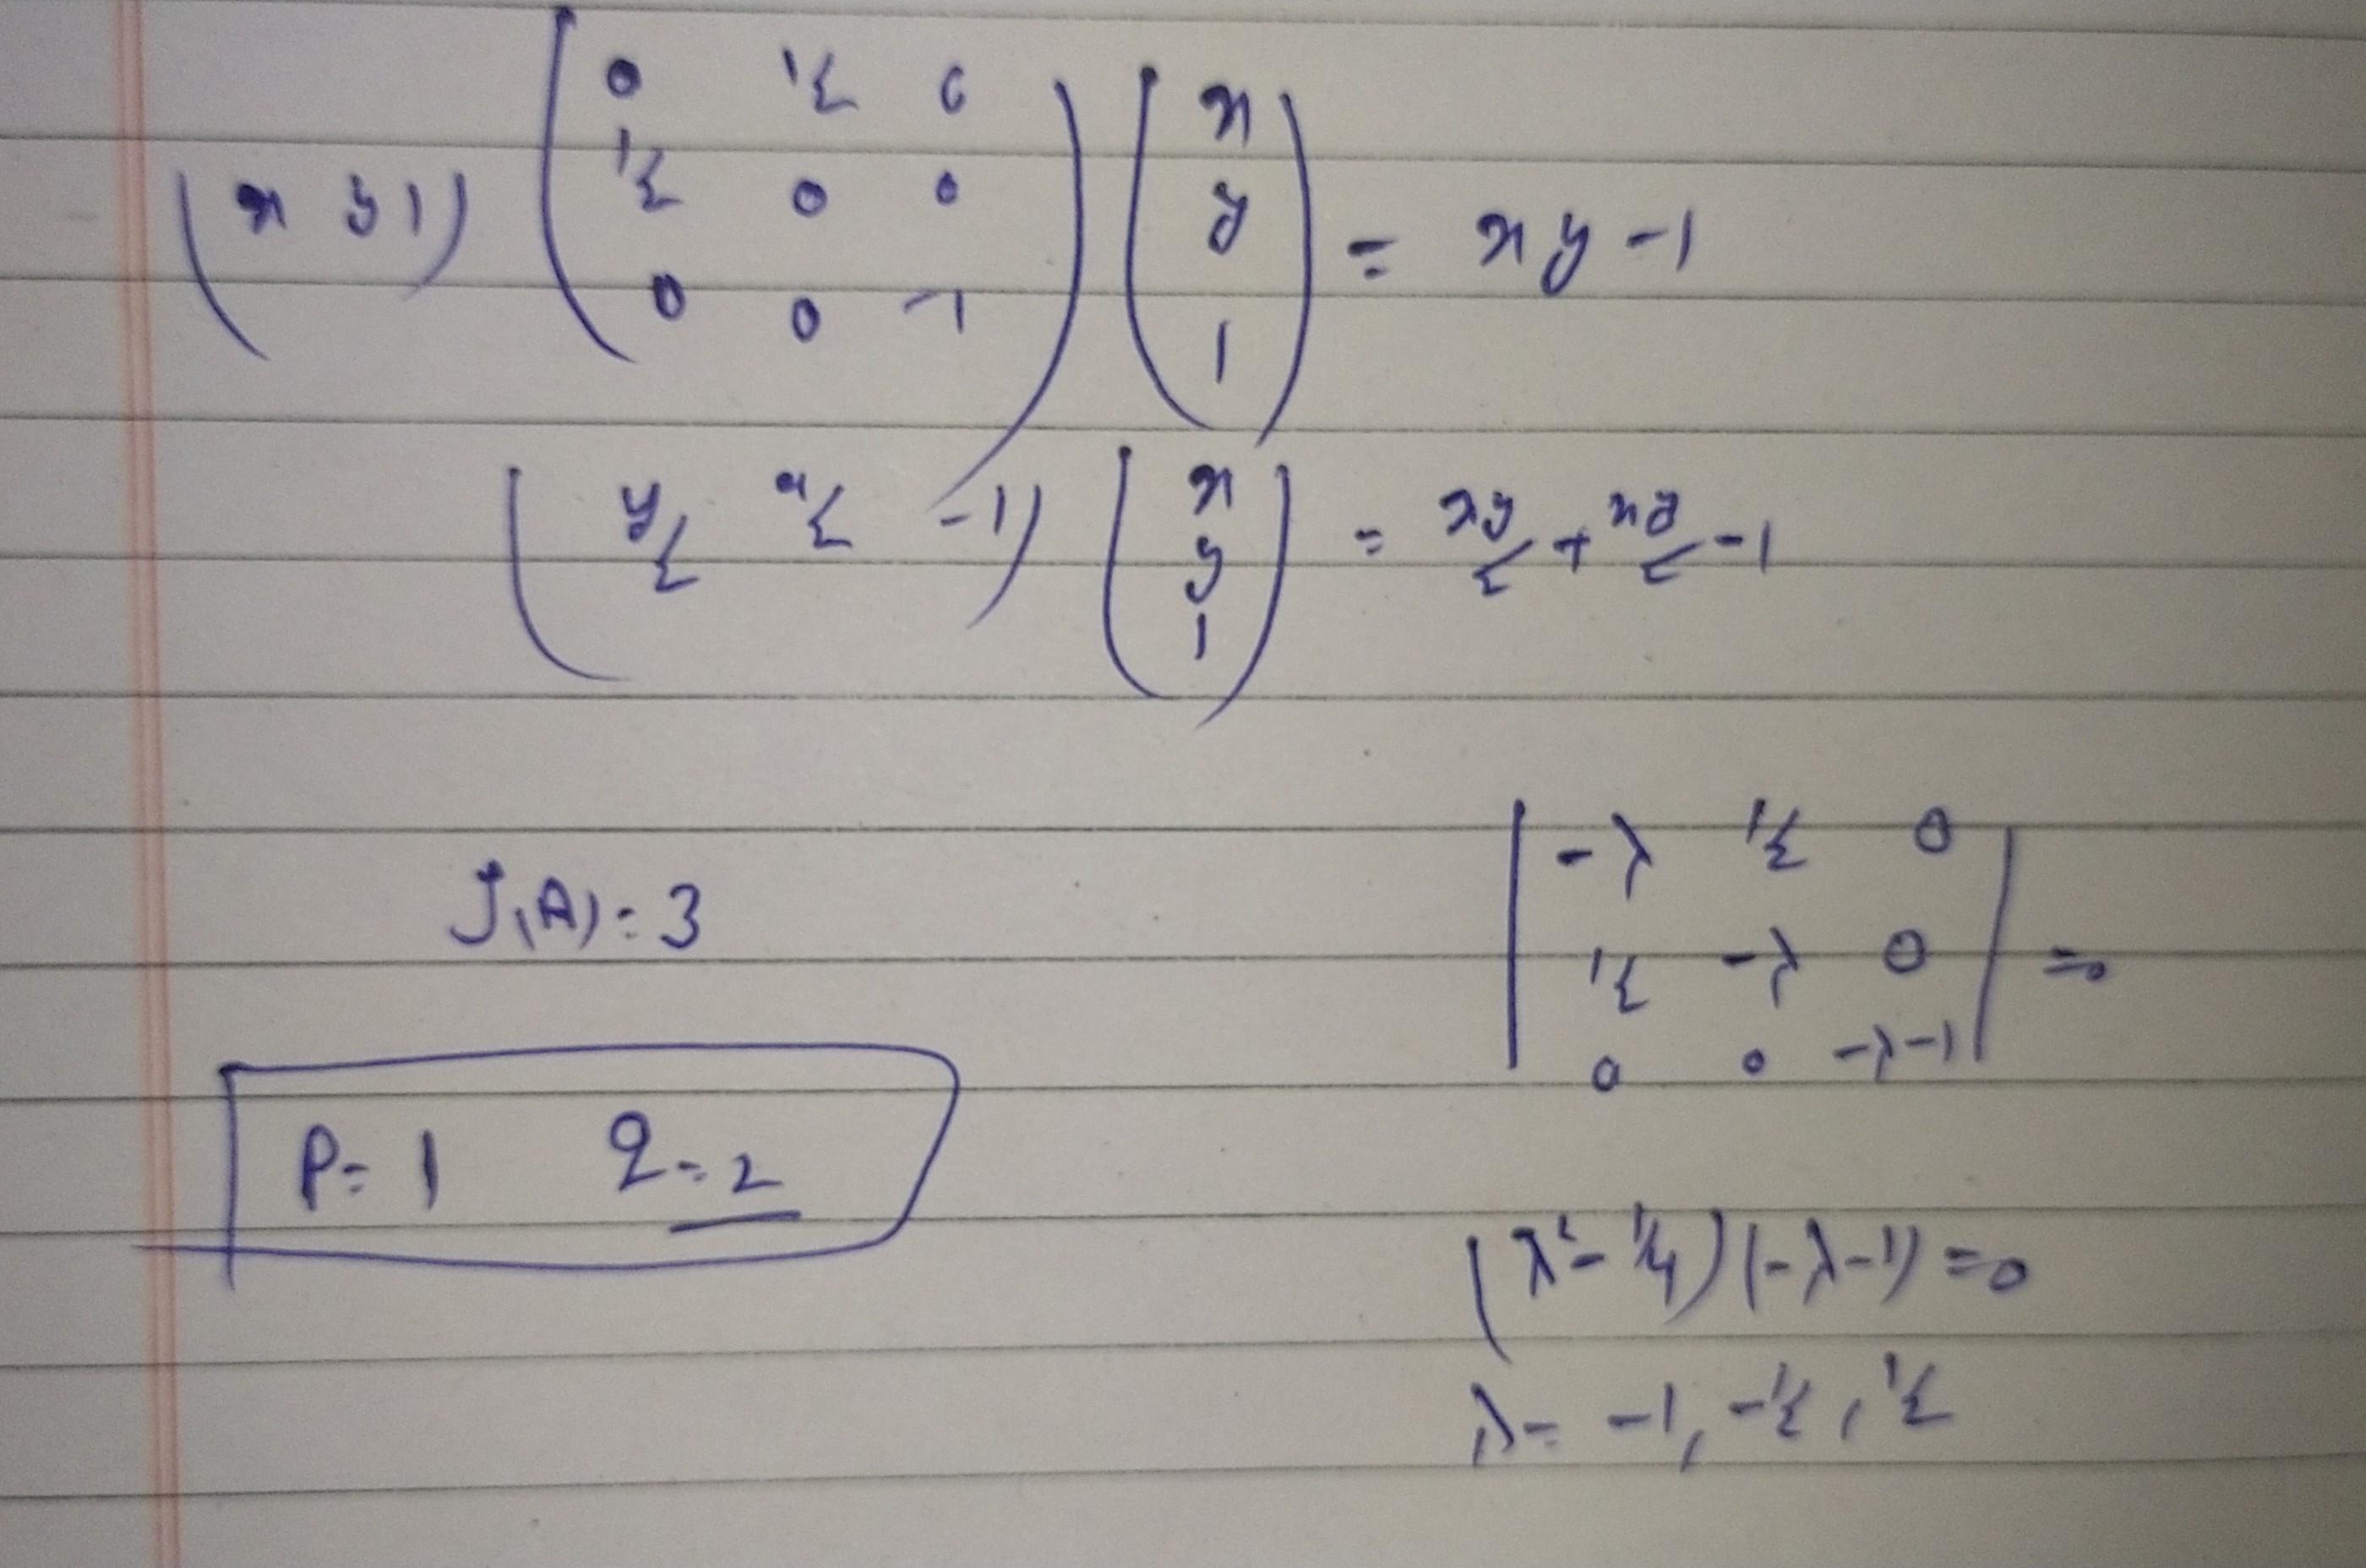 (x y 1) ( 0 1/2 0 ; 1/2 0 0 ; 0 0 -1 ) ( x ; y ; 1 ) = xy - 1
( y/2 x/2 -1 ) ( x ; y ; 1 ) = xy/2 + xy/2 - 1
| -λ 1/2 0 ; 1/2 -λ 0 ; 0 0 -λ-1 | = 0
ρ(A) = 3
P = 1 q = 2
(λ² - 1/4)(-λ-1) = 0
λ = -1, -1/2, 1/2